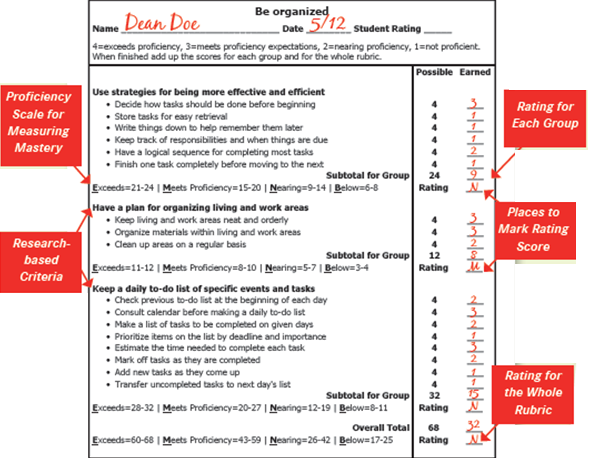 Be organized
Name Dean Doe Date 5/12 Student Rating
4=exceeds proficiency, 3=meets proficiency expectations, 2=nearing proficiency, 1=not proficient.
When finished add up the scores for each group and for the whole rubric.
Possible Earned
Use strategies for being more effective and efficient
• Decide how tasks should be done before beginning 4 3
• Store tasks for easy retrieval 4 1
• Write things down to help remember them later 4 1
• Keep track of responsibilities and when things are due 4 1
• Have a logical sequence for completing most tasks 4 2
• Finish one task completely before moving to the next 4 1
Subtotal for Group 24 9
Exceeds=21-24 | Meets Proficiency=15-20 | Nearing=9-14 | Below=6-8 Rating N
Have a plan for organizing living and work areas
• Keep living and work areas neat and orderly 4 3
• Organize materials within living and work areas 4 3
• Clean up areas on a regular basis 4 2
Subtotal for Group 12 8
Exceeds=11-12 | Meets Proficiency=8-10 | Nearing=5-7 | Below=3-4 Rating M
Keep a daily to-do list of specific events and tasks
• Check previous to-do list at the beginning of each day 4 2
• Consult calendar before making a daily to-do list 4 3
• Make a list of tasks to be completed on given days 4 2
• Prioritize items on the list by deadline and importance 4 1
• Estimate the time needed to complete each task 4 3
• Mark off tasks as they are completed 4 2
• Add new tasks as they come up 4 1
• Transfer uncompleted tasks to next day's list 4 1
Subtotal for Group 32 15
Exceeds=28-32 | Meets Proficiency=20-27 | Nearing=12-19 | Below=8-11 Rating N
Overall Total 68 32
Exceeds=60-68 | Meets Proficiency=43-59 | Nearing=26-42 | Below=17-25 Rating N
Proficiency
Scale for
Measuring
Mastery
Research-
based
Criteria
Rating for
Each Group
Places to
Mark Rating
Score
Rating for
the Whole
Rubric